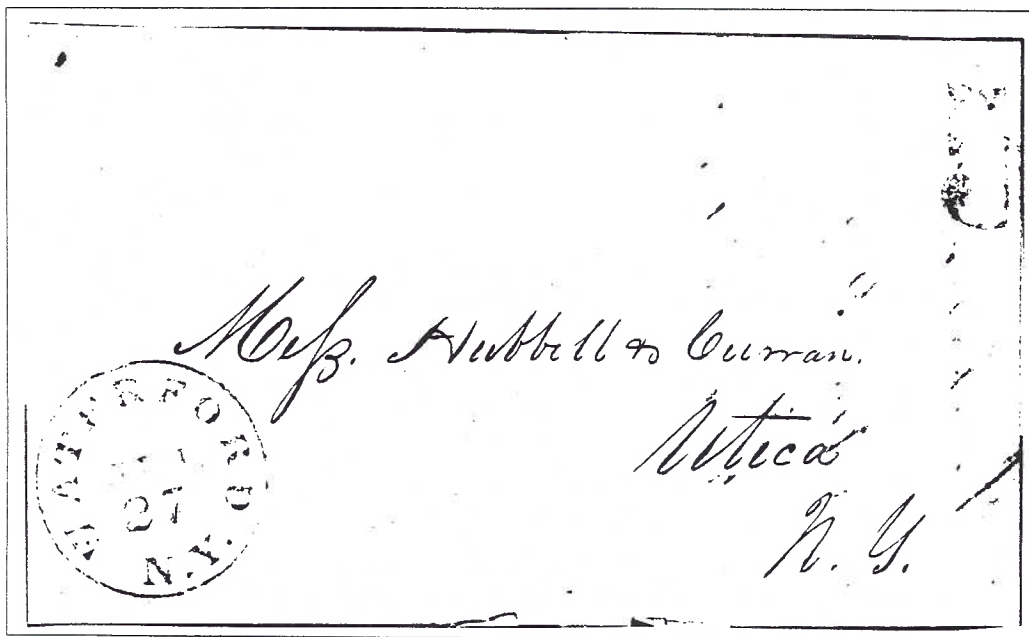 Mess. Hubbell & Curran.
Utica
N. Y.
WATERFORD
27
N.Y.